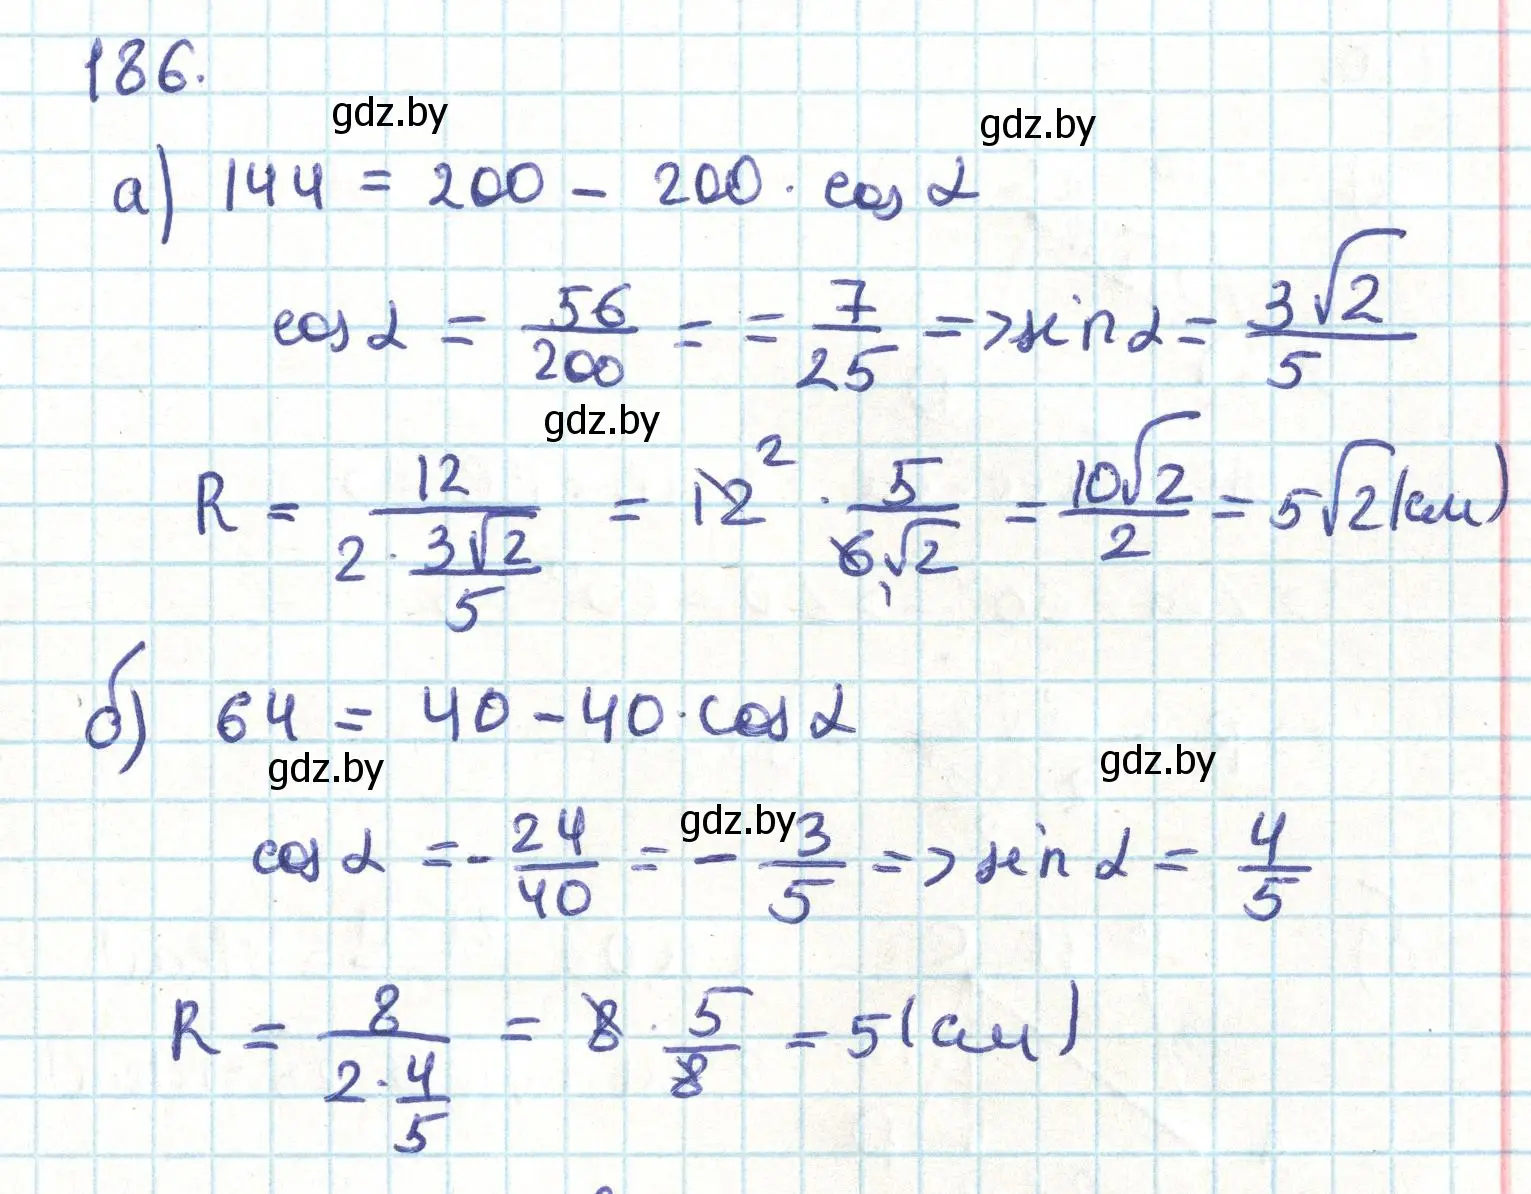 186.
gdz.by gdz.by
а) 144 = 200 - 200 · cos α
cos α = 56/200 = = 7/25 => sin α = 3√2/5
gdz.by
R = 12/(2 · 3√2/5) = 12² · 5/(6√2) = 10√2/2 = 5√2 (см)
1
б) 64 = 40 - 40 · cos α
gdz.by gdz.by
cos α = - 24/40 = - 3/5 => sin α = 4/5
gdz.by
R = 8/(2 · 4/5) = 8 · 5/8 = 5 (см)